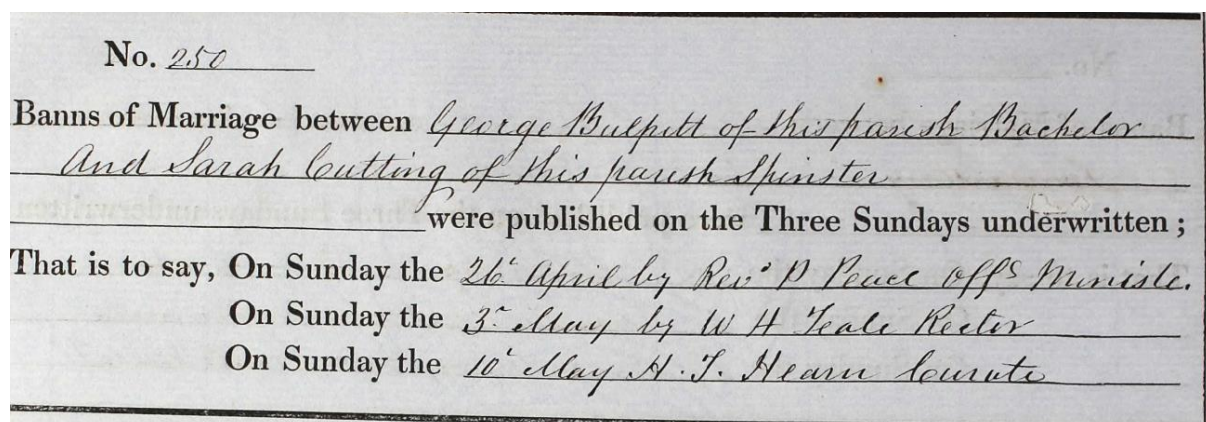 No. 250
Banns of Marriage between George Bulpitt of this parish Bachelor
And Sarah Cutting of this parish Spinster
were published on the Three Sundays underwritten ;
That is to say, On Sunday the 26 April by Revd P Peace offs Ministe.
On Sunday the 3 May by W H Teale Rector
On Sunday the 10 May H. T. Hearn Curate